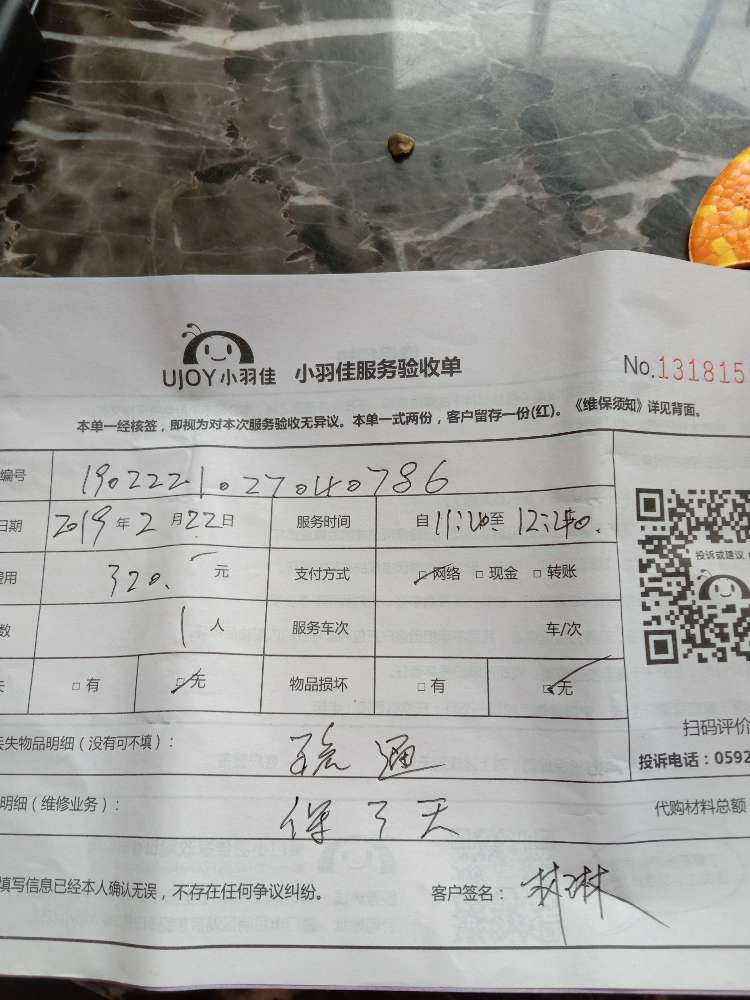 UJOY小羽佳 小羽佳服务验收单 No.131815
本单一经核签，即视为对本次服务验收无异议。本单一式两份，客户留存一份(红)。《维保须知》详见背面。
编号 1902221027040786
日期 2019年2月22日 服务时间 自11:20至12:40.
费用 320.一元 支付方式 □网络 □现金 □转账
数 1人 服务车次 车/次
失 □有 □无 物品损坏 □有 □无
投诉或建议
扫码评价
丢失物品明细（没有可不填）： 疏通
投诉电话：0592
明细（维修业务）： 保7天
代购材料总额
填写信息已经本人确认无误，不存在任何争议纠纷。 客户签名： 林琳